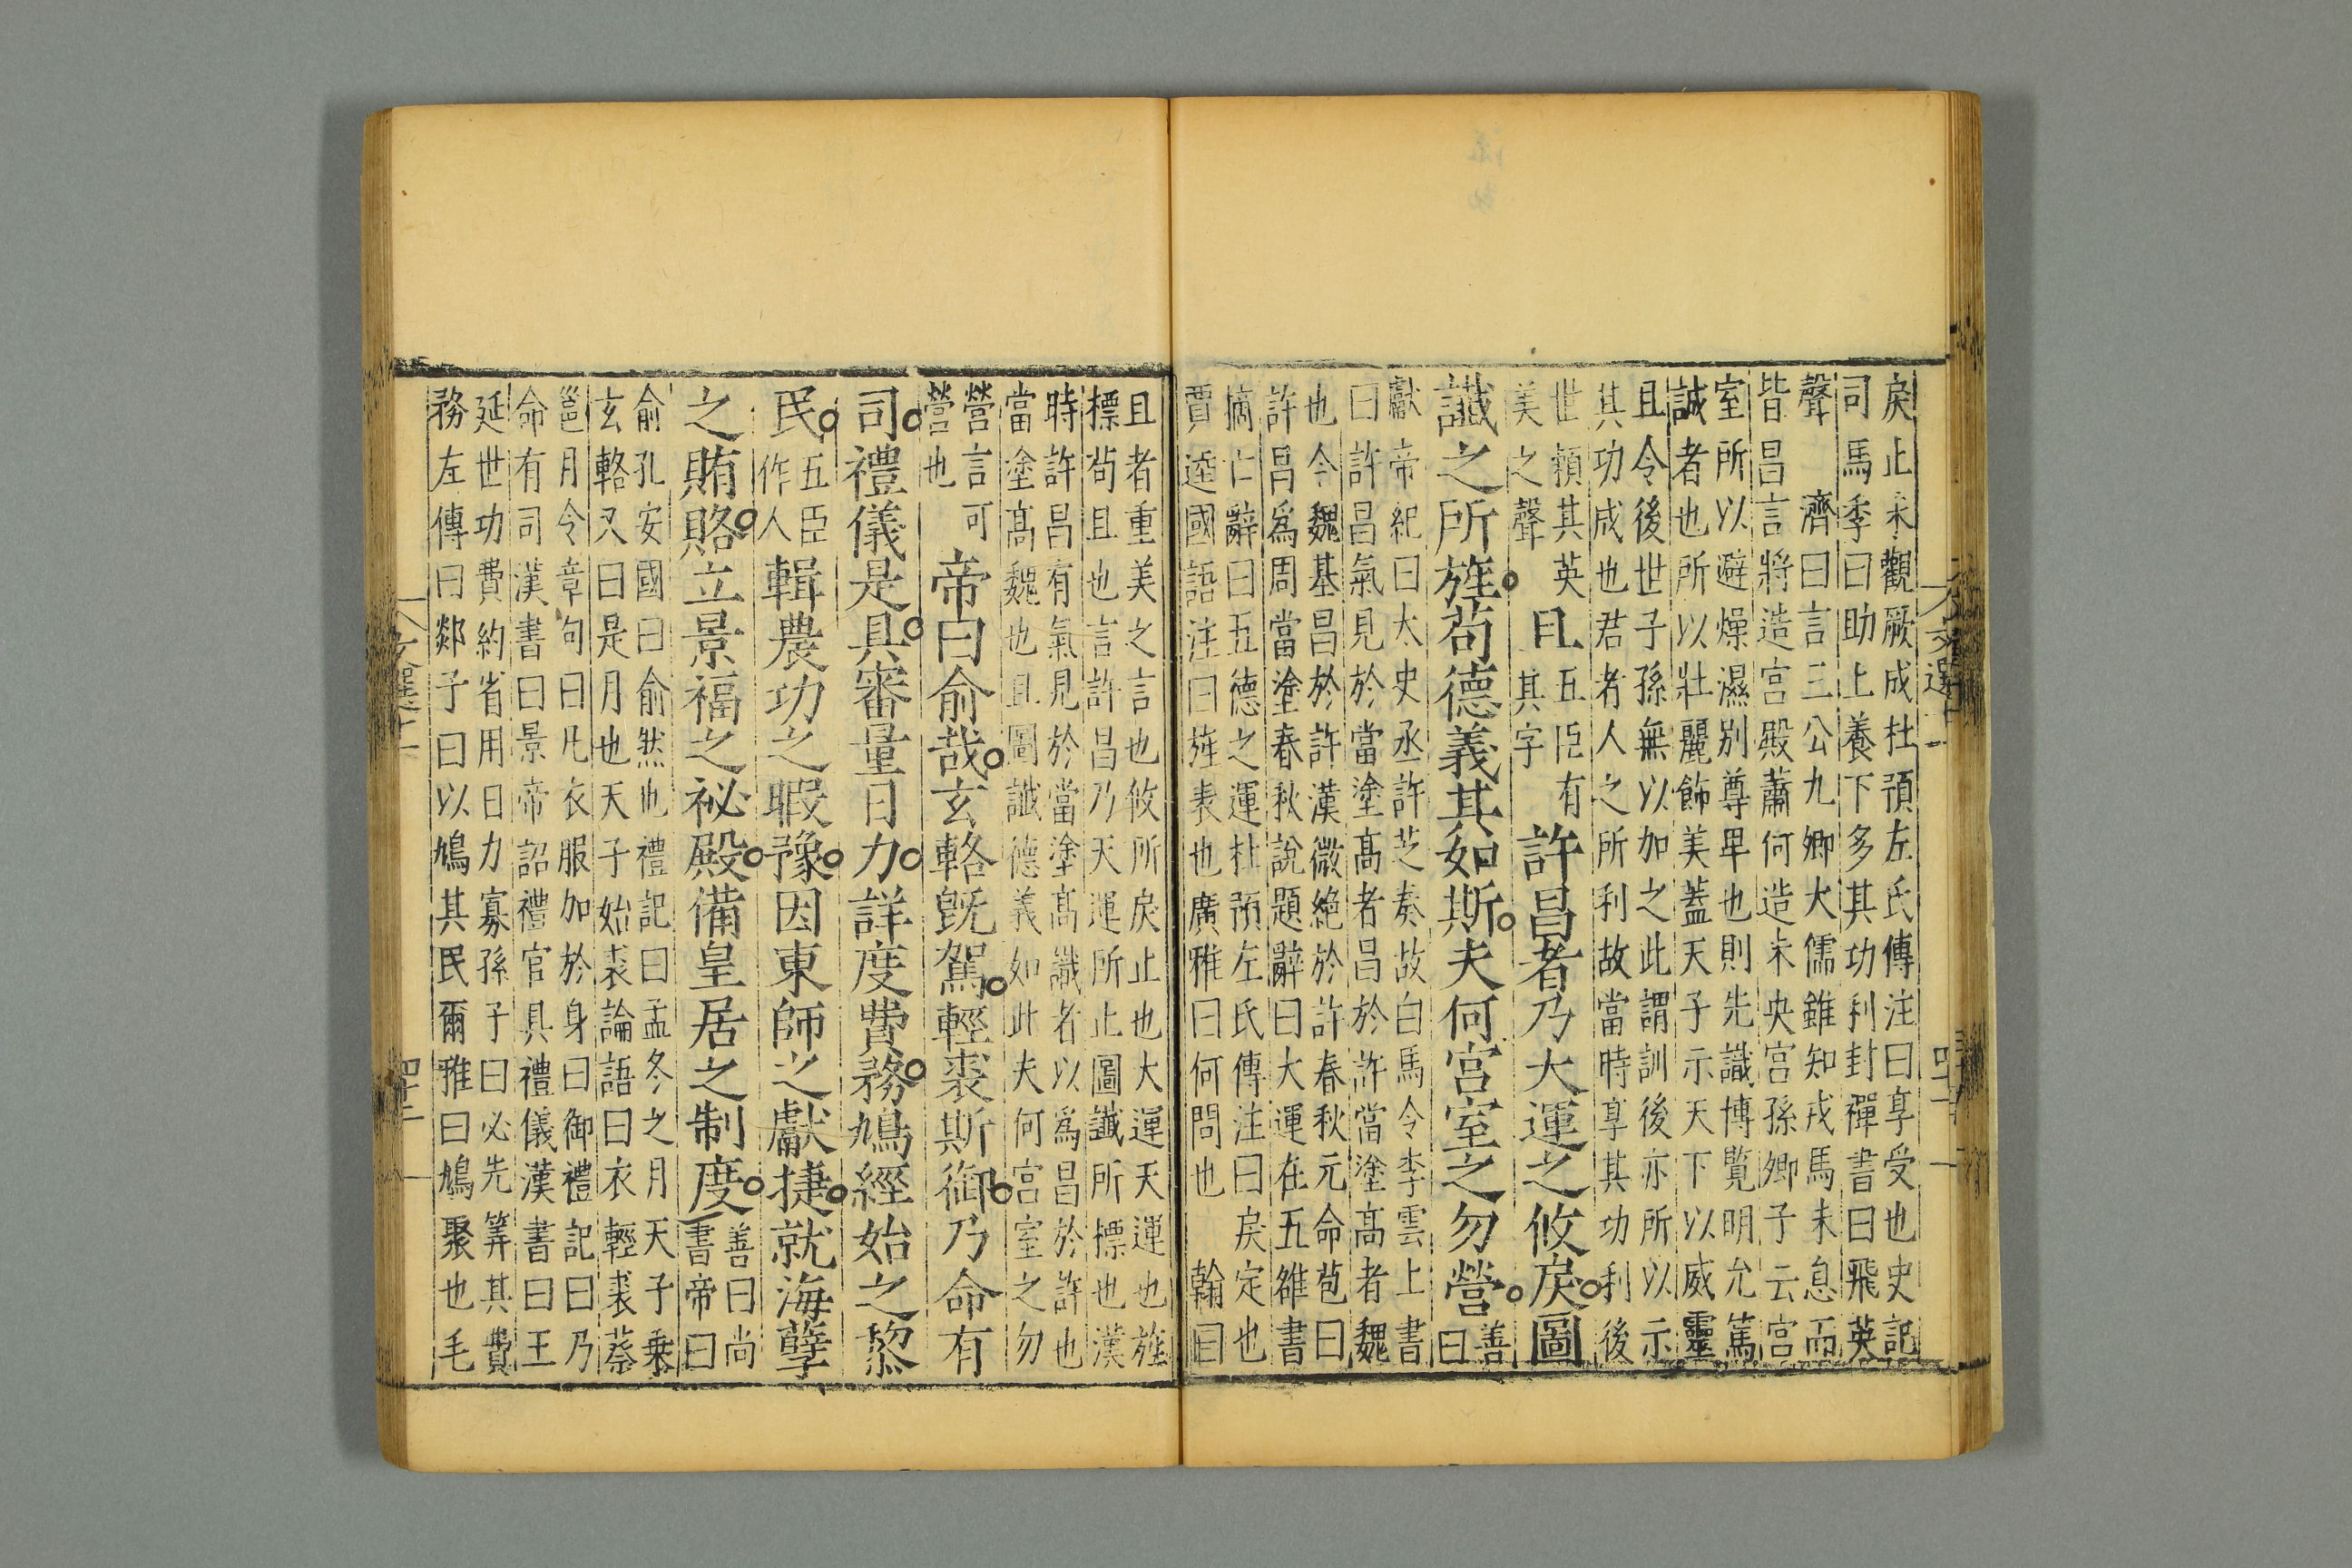 戾止未觀厥成杜預左氏傳注曰享受也史記
司馬季曰助上養下多其功利封禪書曰飛英
聲 濟曰言三公九卿大儒雖知戎馬未息而
皆昌言將造宮殿蕭何造未央宮孫卿子云宮
室所以避燥濕別尊卑也則先識博覽明允篤
誠者也所以壯麗飾美蓋天子示天下以威靈
且令後世子孫無以加之此謂訓後亦所以示
其功成也君者人之所利故當時享其功利後
世頼其英
美之聲
且
五臣有
其字
許昌者乃大運之攸戾圖
讖之所旌苟德義其如斯夫何宮室之勿營
善
曰
獻帝紀曰太史丞許芝奏故白馬令李雲上書
曰許昌氣見於當塗髙者昌於許當塗髙者魏
也今魏基昌於許漢微絶於許春秋元命苞曰
許昌爲周當塗春秋說題辭曰大運在五維書
摘亡辭曰五德之運杜預左氏傳注曰戾定也
賈逵國語注曰旌表也廣雅曰何問也 翰曰
文選十一
四十一
且者重美之言也攸所戾止也大運天運也旌
摽苟且也言許昌乃天運所止圖讖所摽也漢
時許昌有氣見於當塗髙讖者以爲昌於許也
當塗髙魏也且圖讖德義如此夫何宮室之勿
營言可
營也
帝曰俞哉玄輅旣駕輕裘斯御乃命有
司禮儀是具審量日力詳度費務鳩經始之黎
民
五臣
作人
輯農功之暇豫因東師之獻捷就海孽
之賄賂立景福之祕殿備皇居之制度
善曰尚
書帝曰
俞孔安國曰俞然也禮記曰孟冬之月天子乗
玄輅又曰是月也天子始裘論語曰衣輕裘蔡
邕月令章句曰凡衣服加於身曰御禮記曰乃
命有司漢書曰景帝詔禮官具禮儀漢書曰王
延世功費約省用日力寡孫子曰必先筭其費
務左傳曰郯子曰以鳩其民爾雅曰鳩聚也毛
文選十一
四十一